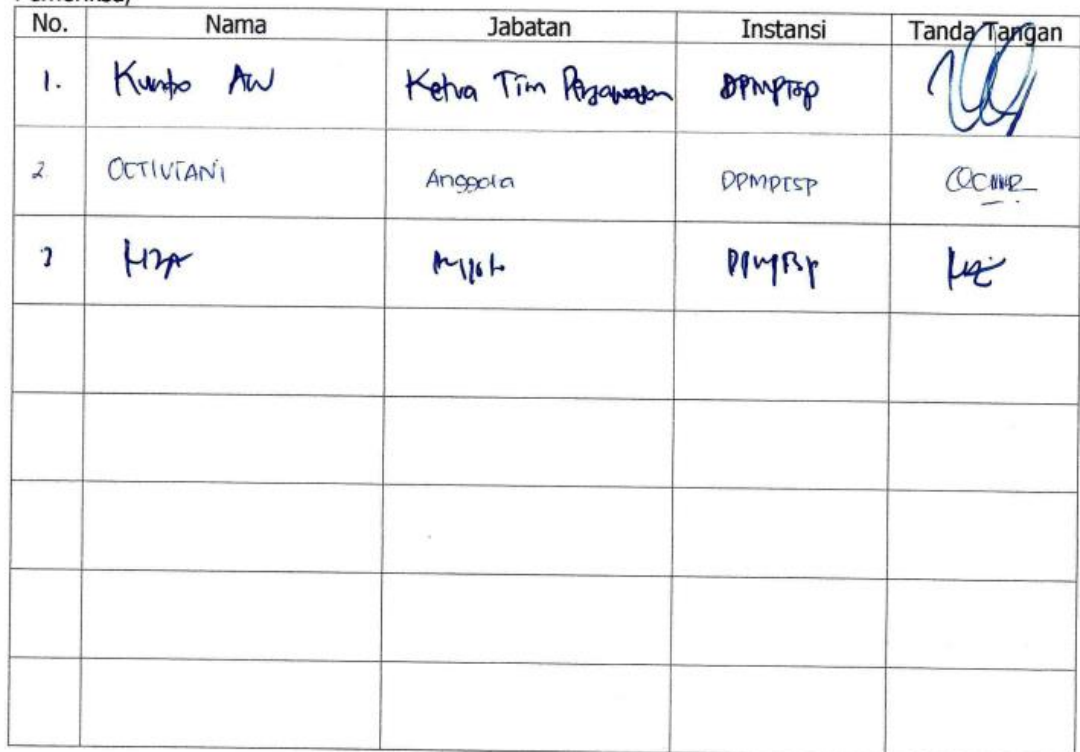 No. Nama Jabatan Instansi Tanda Tangan
1. Kunto AW Ketua Tim Pengawasan DPMPTSP
2 OCTIVIANI Anggota DPMPTSP
3 DPMPTSP